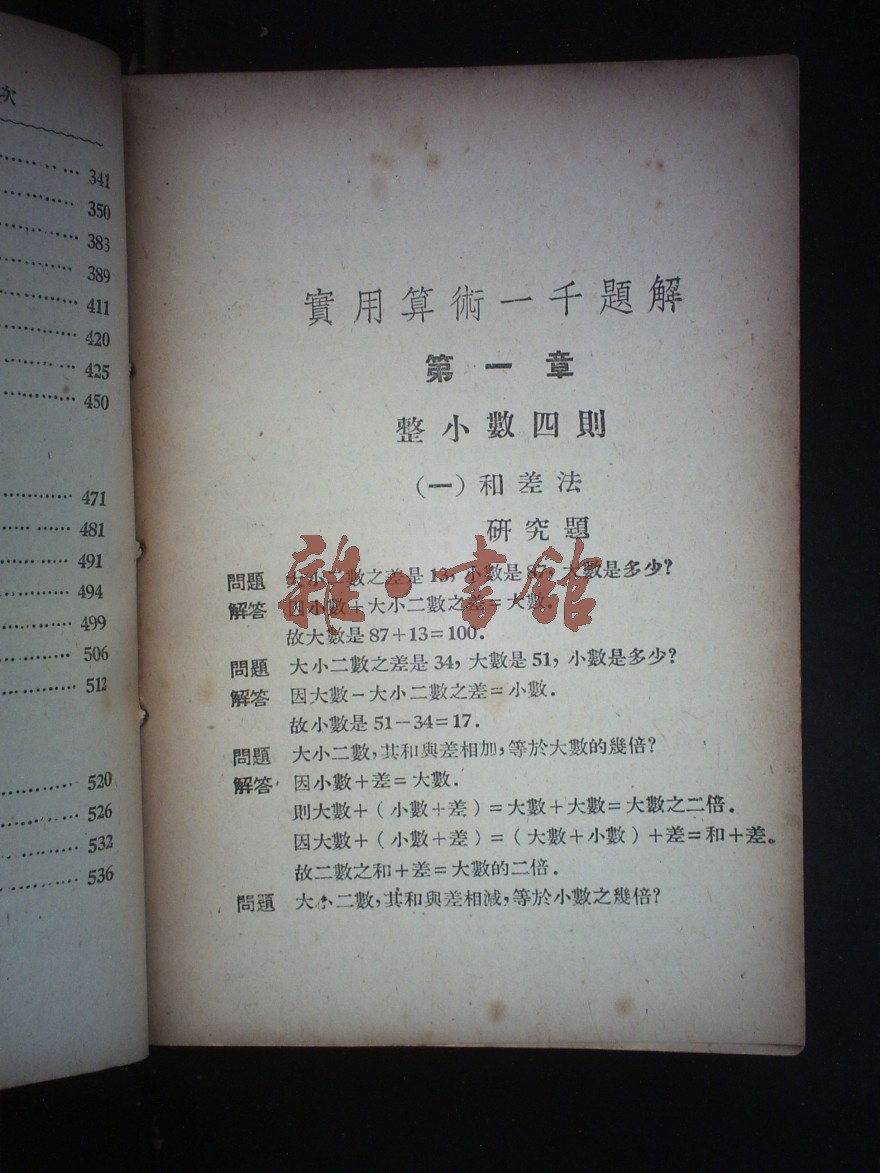 次
341
350
383
389
411
420
425
450
471
481
491
494
499
506
512
520
526
532
536
實用算術一千題解
第一章
整小數四則
(一)和差法
研究題
問題 大小二數之差是13, 小數是87, 大數是多少?
解答 因小數+大小二數之差=大數.
故大數是87+13=100.
問題 大小二數之差是34, 大數是51, 小數是多少?
解答 因大數-大小二數之差=小數.
故小數是51-34=17.
問題 大小二數,其和與差相加,等於大數的幾倍?
解答 因小數+差=大數.
則大數+(小數+差)=大數+大數=大數之二倍.
因大數+(小數+差)=(大數+小數)+差=和+差。
故二數之和+差=大數的二倍.
問題 大小二數,其和與差相減,等於小數之幾倍?
雜·書館